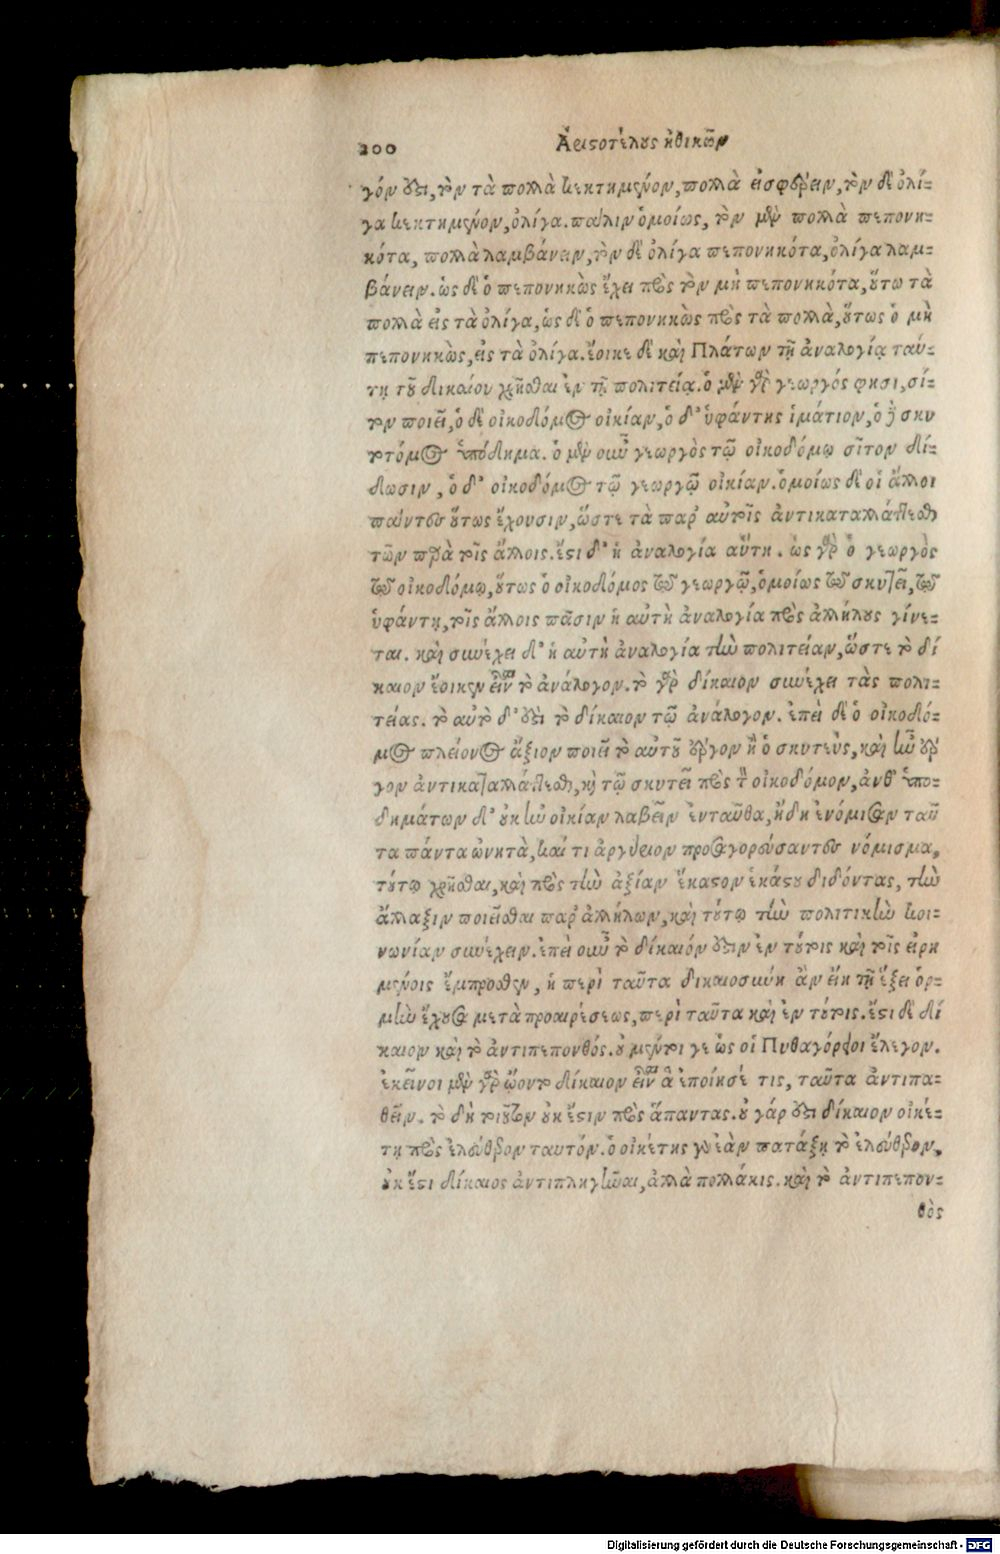 200 Ἀριστοτέλους ἠθικῶν
γόν ἐστι, τὸν τὰ πολλὰ κεκτημένον, πολλὰ εἰσφέρειν, τὸν δὲ ὀλί-
γα κεκτημένον, ὀλίγα. πάλιν ὁμοίως, τὸν μὲν πολλὰ πεπονη-
κότα, πολλὰ λαμβάνειν, τὸν δὲ ὀλίγα πεπονηκότα, ὀλίγα λαμ-
βάνειν. ὡς δὲ ὁ πεπονηκὼς ἔχει πρὸς τὸν μὴ πεπονηκότα, οὕτω τὰ
πολλὰ εἰς τὰ ὀλίγα, ὡς δὲ ὁ πεπονηκὼς πρὸς τὰ πολλὰ, οὕτως ὁ μὴ
πεπονηκὼς, εἰς τὰ ὀλίγα. ἔοικε δὲ καὶ Πλάτων τῇ ἀναλογίᾳ ταύ-
τῃ τοῦ δικαίου χρῆσθαι ἐν τῇ πολιτείᾳ. ὁ μὲν γὰρ γεωργός φησι, σί-
τον ποιεῖ, ὁ δὲ οἰκοδόμος οἰκίαν, ὁ δ' ὑφάντης ἱμάτιον, ὁ δὲ σκυ
τοτόμος ὑπόδημα. ὁ μὲν οὖν γεωργὸς τῷ οἰκοδόμῳ σῖτον δί-
δωσιν, ὁ δ' οἰκοδόμος τῷ γεωργῷ οἰκίαν. ὁμοίως δὲ οἱ ἄλλοι
πάντες οὕτως ἔχουσιν, ὥστε τὰ παρ' αὐτοῖς ἀντικαταλλάττεσθαι
τῶν παρὰ τοῖς ἄλλοις. ἔστι δ' ἡ ἀναλογία αὕτη. ὡς γὰρ ὁ γεωργὸς
τῷ οἰκοδόμῳ, οὕτως ὁ οἰκοδόμος τῷ γεωργῷ, ὁμοίως τῷ σκυτεῖ, τῷ
ὑφάντῃ, τοῖς ἄλλοις πᾶσιν ἡ αὐτὴ ἀναλογία πρὸς ἀλλήλους γίνε-
ται. καὶ συνέχει δ' ἡ αὐτὴ ἀναλογία τὴν πολιτείαν, ὥστε τὸ δί
καιον ἔοικεν εἶναι τὸ ἀνάλογον. τὸ γὰρ δίκαιον συνέχει τὰς πολι-
τείας. τὸ αὐτὸ δ' ἐστὶ τὸ δίκαιον τῷ ἀνάλογον. ἐπεὶ δὲ ὁ οἰκοδό-
μος πλείονος ἄξιον ποιεῖ τὸ αὐτοῦ ἔργον ἢ ὁ σκυτεὺς, καὶ ἦν ἔρ
γον ἀντικαταλλάττεσθαι, καὶ τῷ σκυτεῖ πρὸς τὸν οἰκοδόμον, ἀνθ' ὑπο-
δημάτων δ' οὐκ ἦν οἰκίαν λαβεῖν ἐνταῦθα, ἤδη ἐνόμισαν ταῦ
τα πάντα ὠνητὰ, καί τι ἀργύριον προσαγορεύσαντες νόμισμα,
τούτῳ χρῆσθαι, καὶ πρὸς τὴν ἀξίαν ἕκαστον ἑκάστου διδόντας, τὴν
ἄλλαξιν ποιεῖσθαι παρ' ἀλλήλων, καὶ τούτῳ τὴν πολιτικὴν κοι-
νωνίαν συνέχειν. ἐπεὶ οὖν τὸ δίκαιόν ἐστιν ἐν τούτοις καὶ τοῖς εἰρη
μένοις ἔμπροσθεν, ἡ περὶ ταῦτα δικαιοσύνη ἂν εἴη τῇ ἕξει ὁρ-
μὴν ἔχουσα μετὰ προαιρέσεως, περὶ ταῦτα καὶ ἐν τούτοις. ἔστι δὲ δί
καιον καὶ τὸ ἀντιπεπονθός. οὐ μέντοι γε ὡς οἱ Πυθαγόρειοι ἔλεγον.
ἐκεῖνοι μὲν γὰρ ᾤοντο δίκαιον εἶναι ἃ ἐποίησέ τις, ταῦτα ἀντιπα-
θεῖν. τὸ δὴ τοιοῦτον οὐκ ἔστιν πρὸς ἅπαντας. οὐ γάρ ἐστι δίκαιον οἰκέ-
τῃ πρὸς ἐλεύθερον ταυτόν. ὁ οἰκέτης γὰρ ἐὰν πατάξῃ τὸ ἐλεύθερον,
οὐκ ἔστι δίκαιος ἀντιπληγῶναι, ἀλλὰ πολλάκις. καὶ τὸ ἀντιπεπον-
θὸς
Digitalisierung gefördert durch die Deutsche Forschungsgemeinschaft - DFG